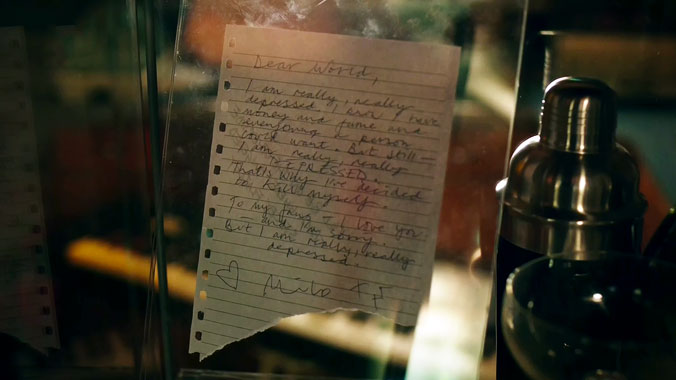 Dear World,
I am really, really
depressed. Even I have
money and fame and
everything a person
could want. But still —
I am really, really
DEPRESSED.
That's why I've decided
to kill myself.
To my fans — I love you
— and I'm sorry.
But I am really, really
depressed.
♡ Milo